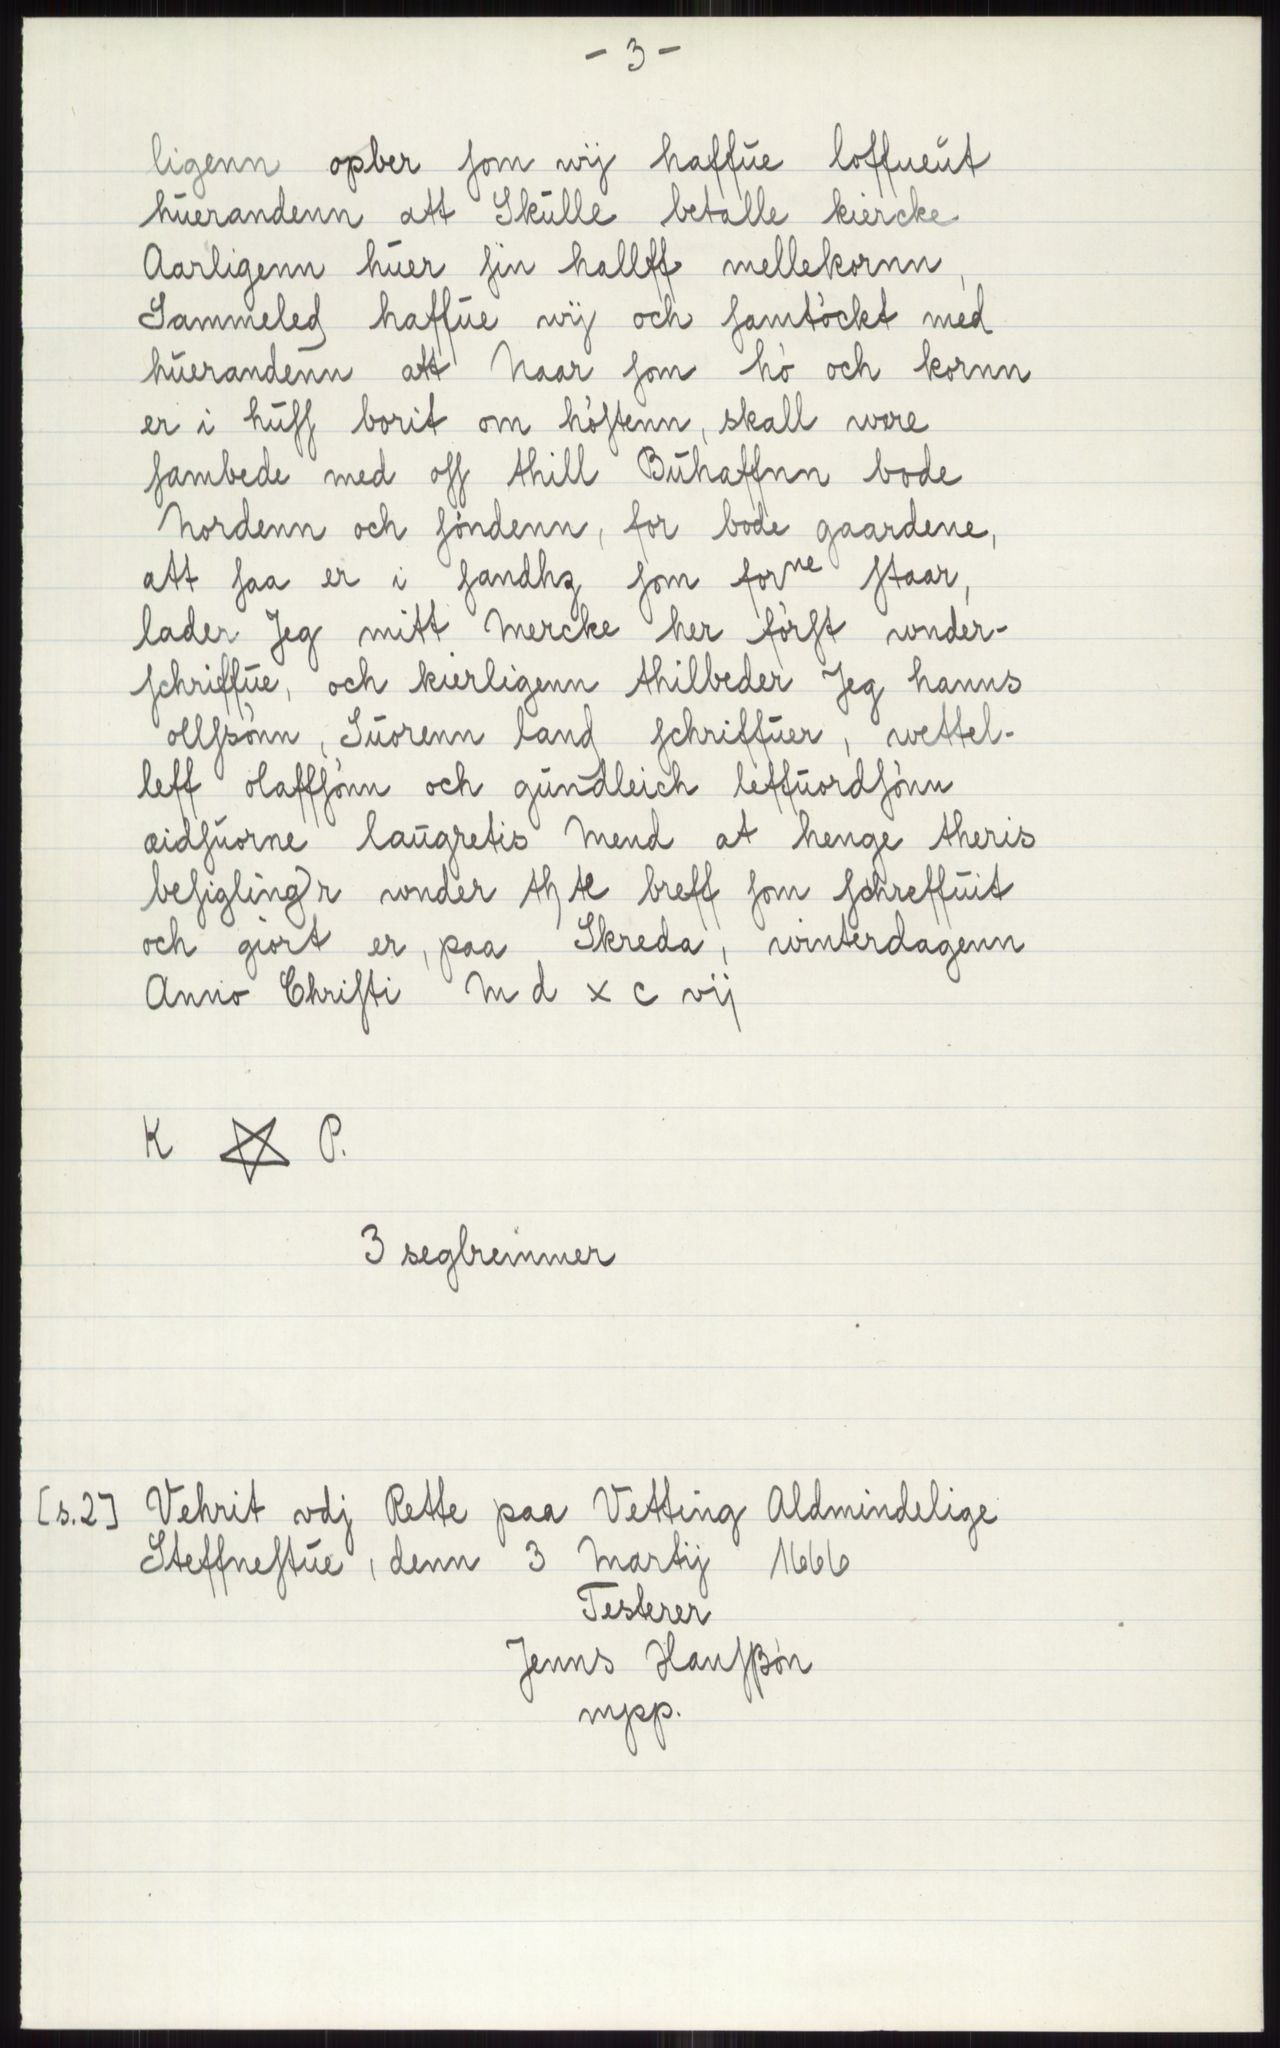 - 3 -
ligenn opber som wij haffue loffueut
huerandenn att Skulle betalle kiercke
Aarligenn huer sin hallff mellekornn,
Sammeled haffue wij och samtöckt med
huerandenn att Naar som hö och kornn
er i huss borit om höstenn, skall wore
sambede med oss thill Buhaffnn bode
Nordenn och söndenn, for bode gaardene,
att saa er i sandhz som forne staar,
lader Jeg mitt Mercke her först wnder-
schriffue, och kierligenn thilbeder Jeg hanns
ollssönn, Suorenn land schriffuer, wettel-
leff olaffsönn och gundleich leffuordsönn
æidsuorne laugretis Mend at henge theris
besigling)r wnder thtte breff som schreffuit
och giort er, paa Skreda, winterdagenn
Anno Christi M d x c vij
K P.
3 seglremmer
[s.2] Vehrit vdj Rette paa Vetting Aldmindelige
Steffnestue, denn 3 Martij 1666
Testerer
Jenns Hansßön
mpp.